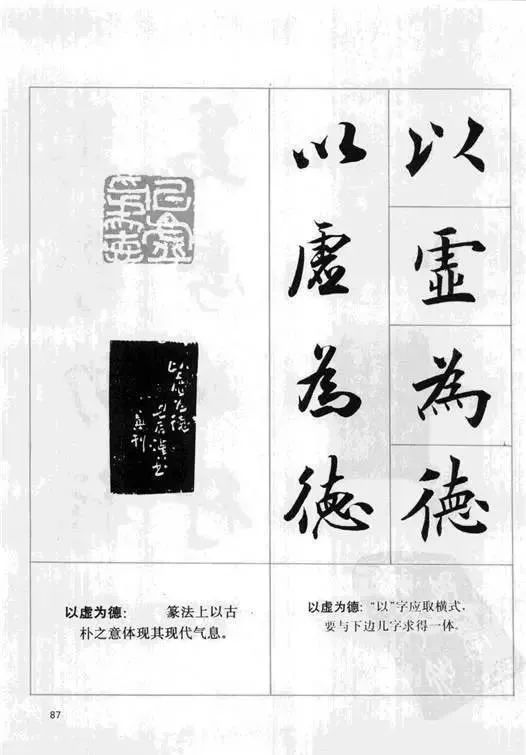 以虚為德
以虚為德
以虚为德： 篆法上以古
朴之意体现其现代气息。
以虚为德：“以”字应取横式，
要与下边几字求得一体。
87